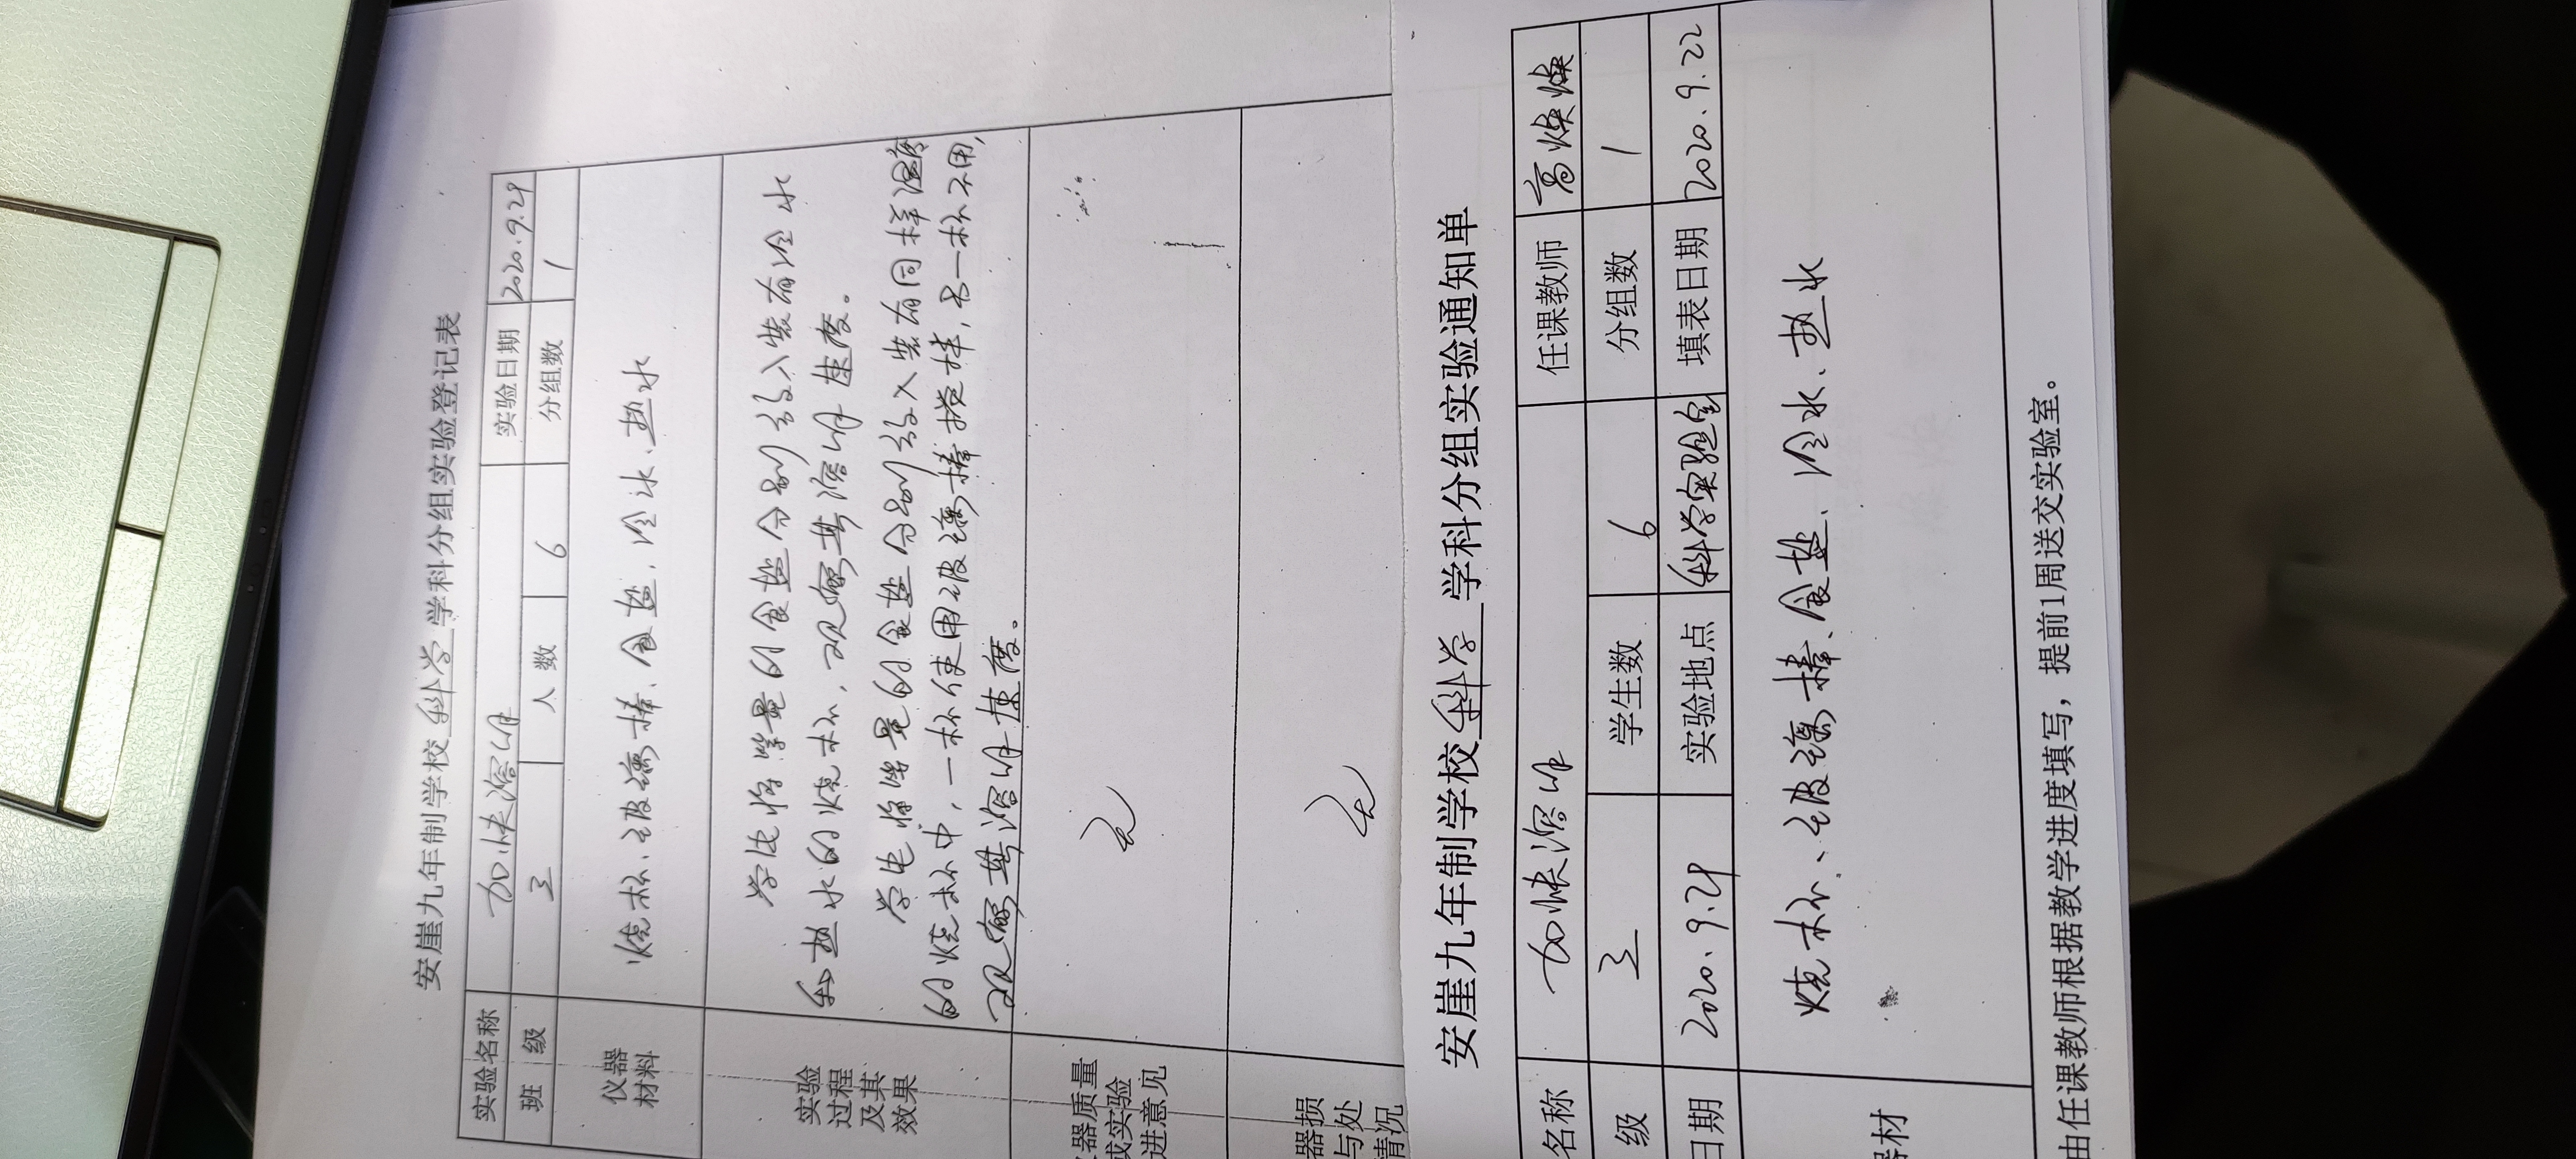 安崖九年制学校 科学 学科分组实验登记表
实验名称 加快溶解 实验日期 2020.9.29
班 级 三 人 数 6 分组数 1
仪器
材料
烧杯、玻璃棒、食盐、冷水、热水
实验
过程
及其
效果
学生将等量的食盐分别放入装有冷水
和热水的烧杯，观察其溶解速度。
学生将等量的食盐分别放入装有同样温度
的烧杯中，一杯使用玻璃棒搅拌，另一杯不用，
观察其溶解速度。
器质量
或实验
进意见
无
器损
与处
情况
无
安崖九年制学校 科学 学科分组实验通知单
名称 加快溶解 任课教师 高焕焕
级 三 学生数 6 分组数 1
日期 2020.9.29 实验地点 科学实验室 填表日期 2020.9.22
器材
烧杯、玻璃棒、食盐、冷水、热水
由任课教师根据教学进度填写，提前1周送交实验室。